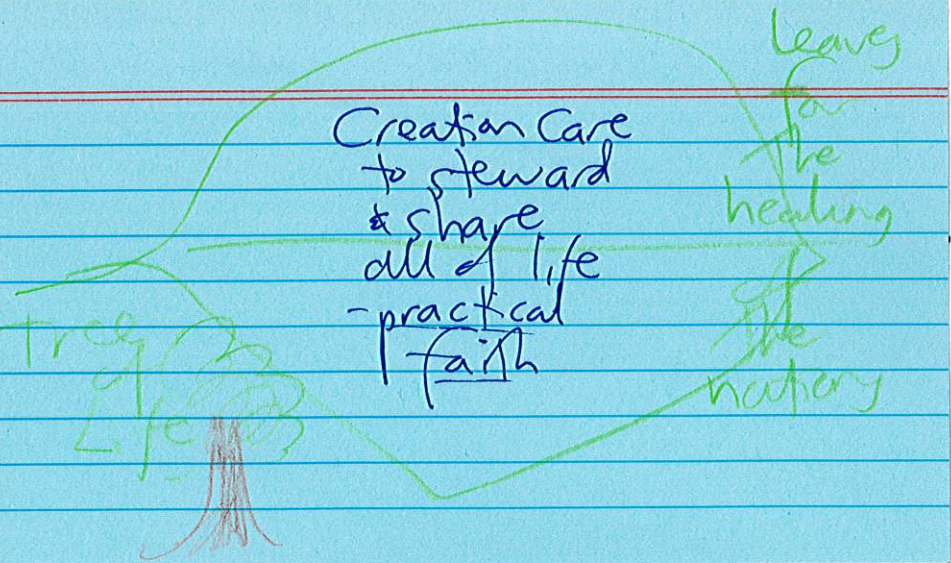 Creation Care
to steward
& share
all of life
- practical
faith
Tree
of
Life
Leaves
for
the
healing
of
the
nations